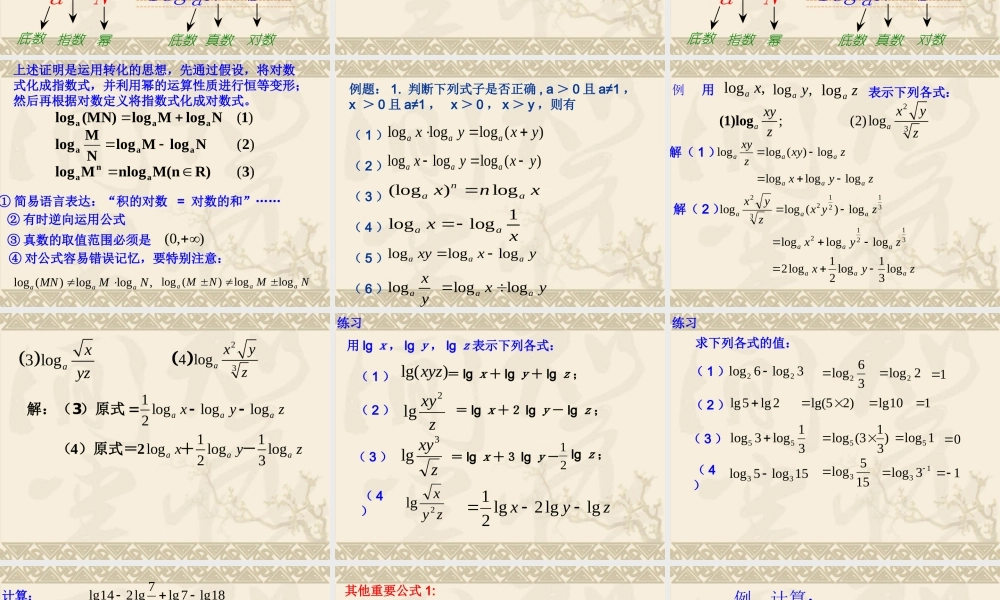 底数 指数 幂 底数 真数 对数
底数 指数 幂 底数 真数 对数
上述证明是运用转化的思想，先通过假设，将对数
式化成指数式，并利用幂的运算性质进行恒等变形；
然后再根据对数定义将指数式化成对数式。
logₐ(MN) logₐM logₐN (1)
logₐ M/N logₐM logₐN (2)
logₐMⁿ nlogₐM(n∈R) (3)
① 简易语言表达：“积的对数 = 对数的和”……
② 有时逆向运用公式
③ 真数的取值范围必须是 (0,+∞)
④ 对公式容易错误记忆，要特别注意：
logₐ(MN) logₐM·logₐN, logₐ(M N) logₐM logₐN
例题： 1. 判断下列式子是否正确 , a ＞ 0 且 a≠1 ，
x ＞ 0 且 a≠1 ， x ＞ 0 ， x ＞ y ，则有
（ 1 ） logₐx·logₐy = logₐ(x + y)
（ 2 ） logₐx logₐy = logₐ(x y)
（ 3 ） (logₐx)ⁿ = n logₐx
（ 4 ） logₐx = logₐ 1/x
（ 5 ） logₐxy = logₐx logₐy
（ 6 ） logₐ x/y logₐx logₐy
例 用 logₐx, logₐy, logₐz 表示下列各式：
(1)logₐ xy/z ; (2)logₐ x²√y/∛z
解（ 1 ） logₐ xy/z = logₐ(xy) − logₐz
= logₐx + logₐy − logₐz
解（ 2 ） logₐ x²√y/∛z = logₐ(x²y^(1/2)) − logₐz^(1/3)
= logₐx² + logₐy^(1/2) − logₐz^(1/3)
= 2logₐx + 1/2 logₐy − 1/3 logₐz
(3)logₐ √x/yz (4)logₐ x²√y/∛z
解：（3）原式 = 1/2 logₐx − logₐy − logₐz
（4）原式＝2logₐx＋1/2 logₐy－1/3 logₐz
练习
用 lg x ， lg y ， lg z 表示下列各式：
（ 1 ） lg(xyz) ＝ lg x ＋ lg y ＋ lg z ；
（ 2 ） lg xy²/z ＝ lg x ＋ 2 lg y － lg z ；
（ 3 ） lg xy³/√z ＝ lg x ＋ 3 lg y － 1/2 lg z ；
（ 4 ） lg √x/y²z = 1/2 lg x − 2lg y − lg z
练习
求下列各式的值：
（ 1 ） log₂6 − log₂3 = log₂ 6/3 = log₂2 = 1
（ 2 ） lg5 + lg2 = lg(5 2) = lg10 = 1
（ 3 ） log₅3 + log₅ 1/3 = log₅(3 1/3) = log₅1 = 0
（ 4 ） log₃5 − log₃15 = log₃ 5/15 = log₃3⁻¹ = − 1
计算： lg14 − 2lg 7 + lg7 − lg18
其他重要公式 1:
例 计算：